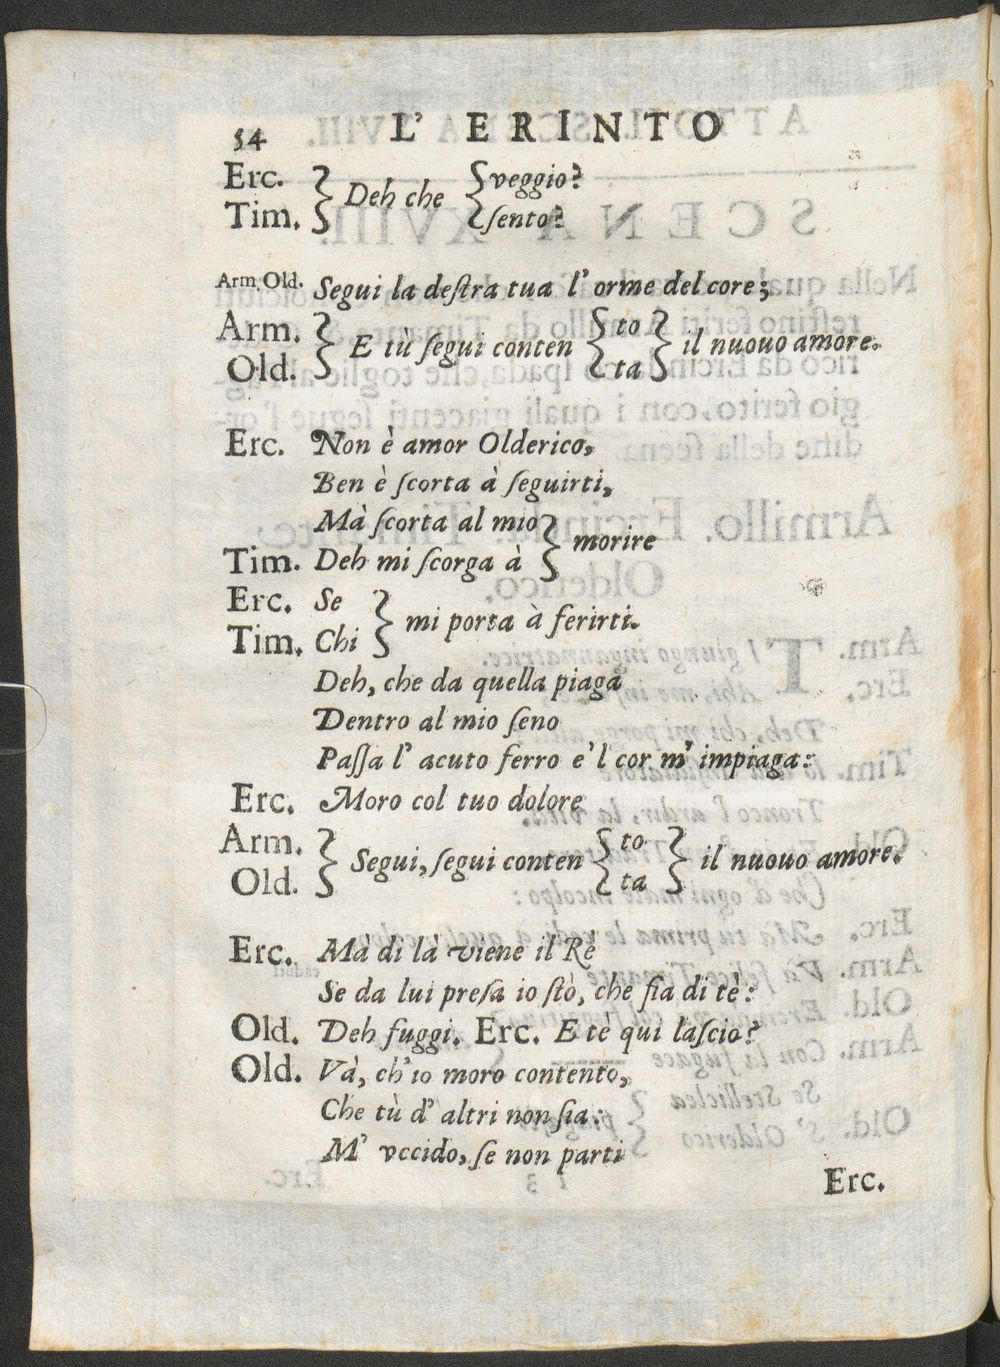 54 L' ERINTO
Erc. } Deh che { veggio?
Tim. } { ſento?
Arm. Old. Segui la deſtra tua l' orme del core;
Arm. } E tù ſegui conten { to } il nuouo amore.
Old. } { ta }
Erc. Non è amor Olderico,
Ben è ſcorta à ſeguirti,
Mà ſcorta al mio } morire
Tim. Deh mi ſcorga à }
Erc. Se } mi porta à ferirti.
Tim. Chi }
Deh, che da quella piaga
Dentro al mio ſeno
Paſſa l' acuto ferro e 'l cor m' impiaga:
Erc. Moro col tuo dolore
Arm. } Segui, ſegui conten { to } il nuouo amore.
Old. } { ta }
Erc. Mà di là viene il Rè
Se da lui preſa io ſtò, che fia di tè:
Old. Deh fuggi. Erc. E tè qui laſcio?
Old. Và, ch' io moro contento,
Che tù d' altri non ſia:
M' vccido, ſe non parti
Erc.